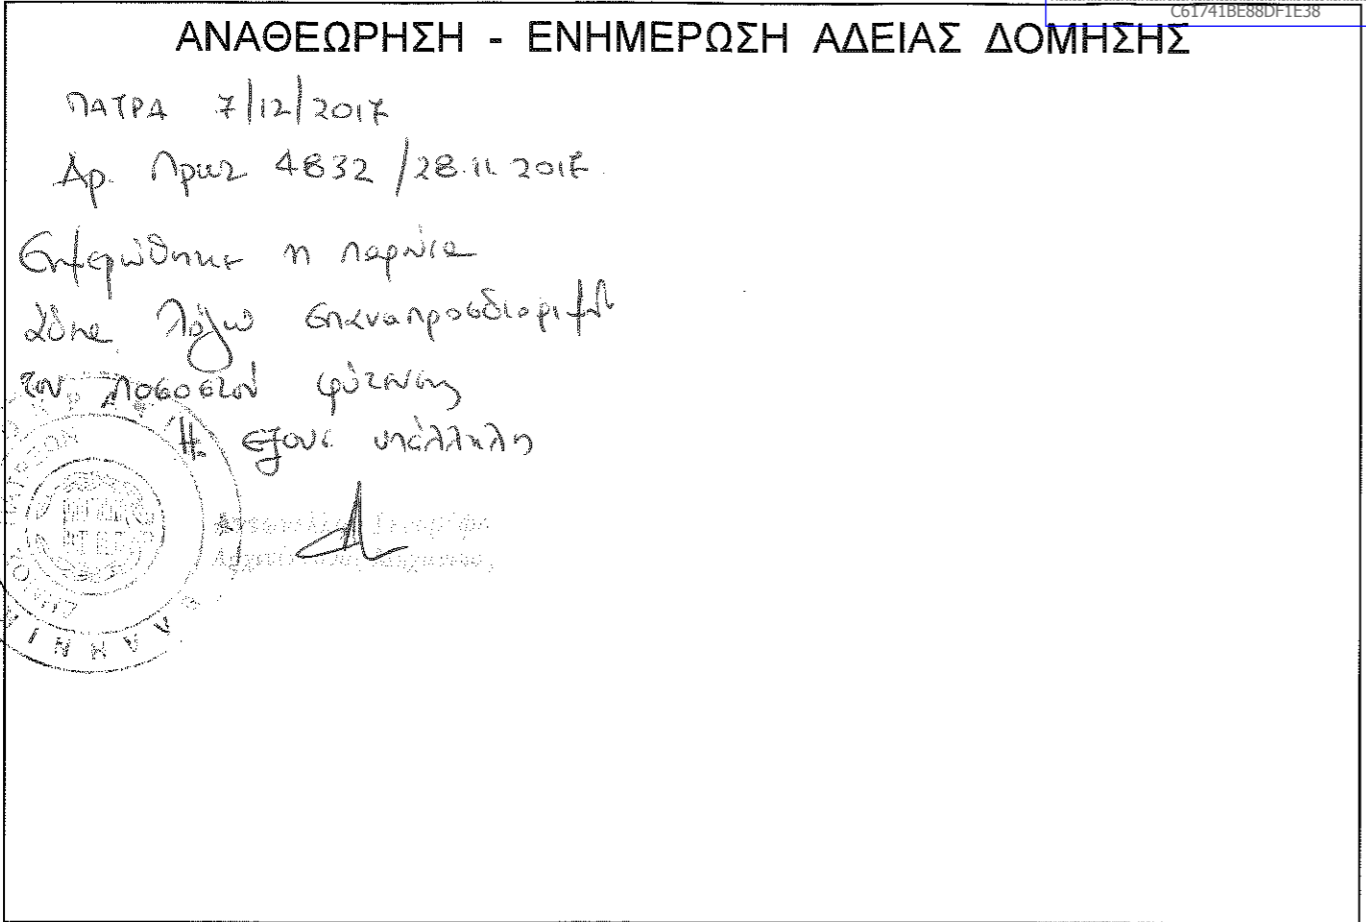 C61741BE88DF1E38
ΑΝΑΘΕΩΡΗΣΗ - ΕΝΗΜΕΡΩΣΗ ΑΔΕΙΑΣ ΔΟΜΗΣΗΣ
ΠΑΤΡΑ 7/12/2017
Αρ. Πρωτ 4832 / 28.11.2017
Ενημερώθηκε η παρούσα
άδεια λόγω επαναπροσδιορισμού
του ποσοστού φύτευσης
Η εξουσ υπάλληλη